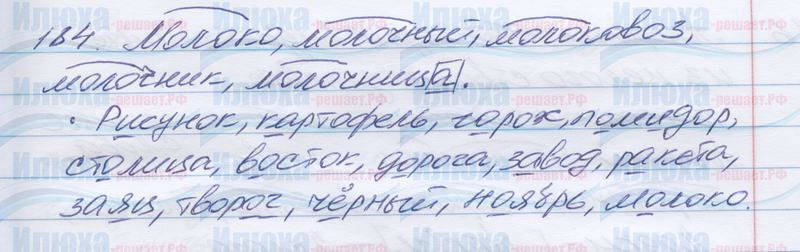 184. Молоко, молочный, молоковоз,
молочник, молочница.
• Рисунок, картофель, горох, помидор,
столица, восток, дорога, завод, ракета,
заяц, творог, чёрный, ноябрь, молоко.